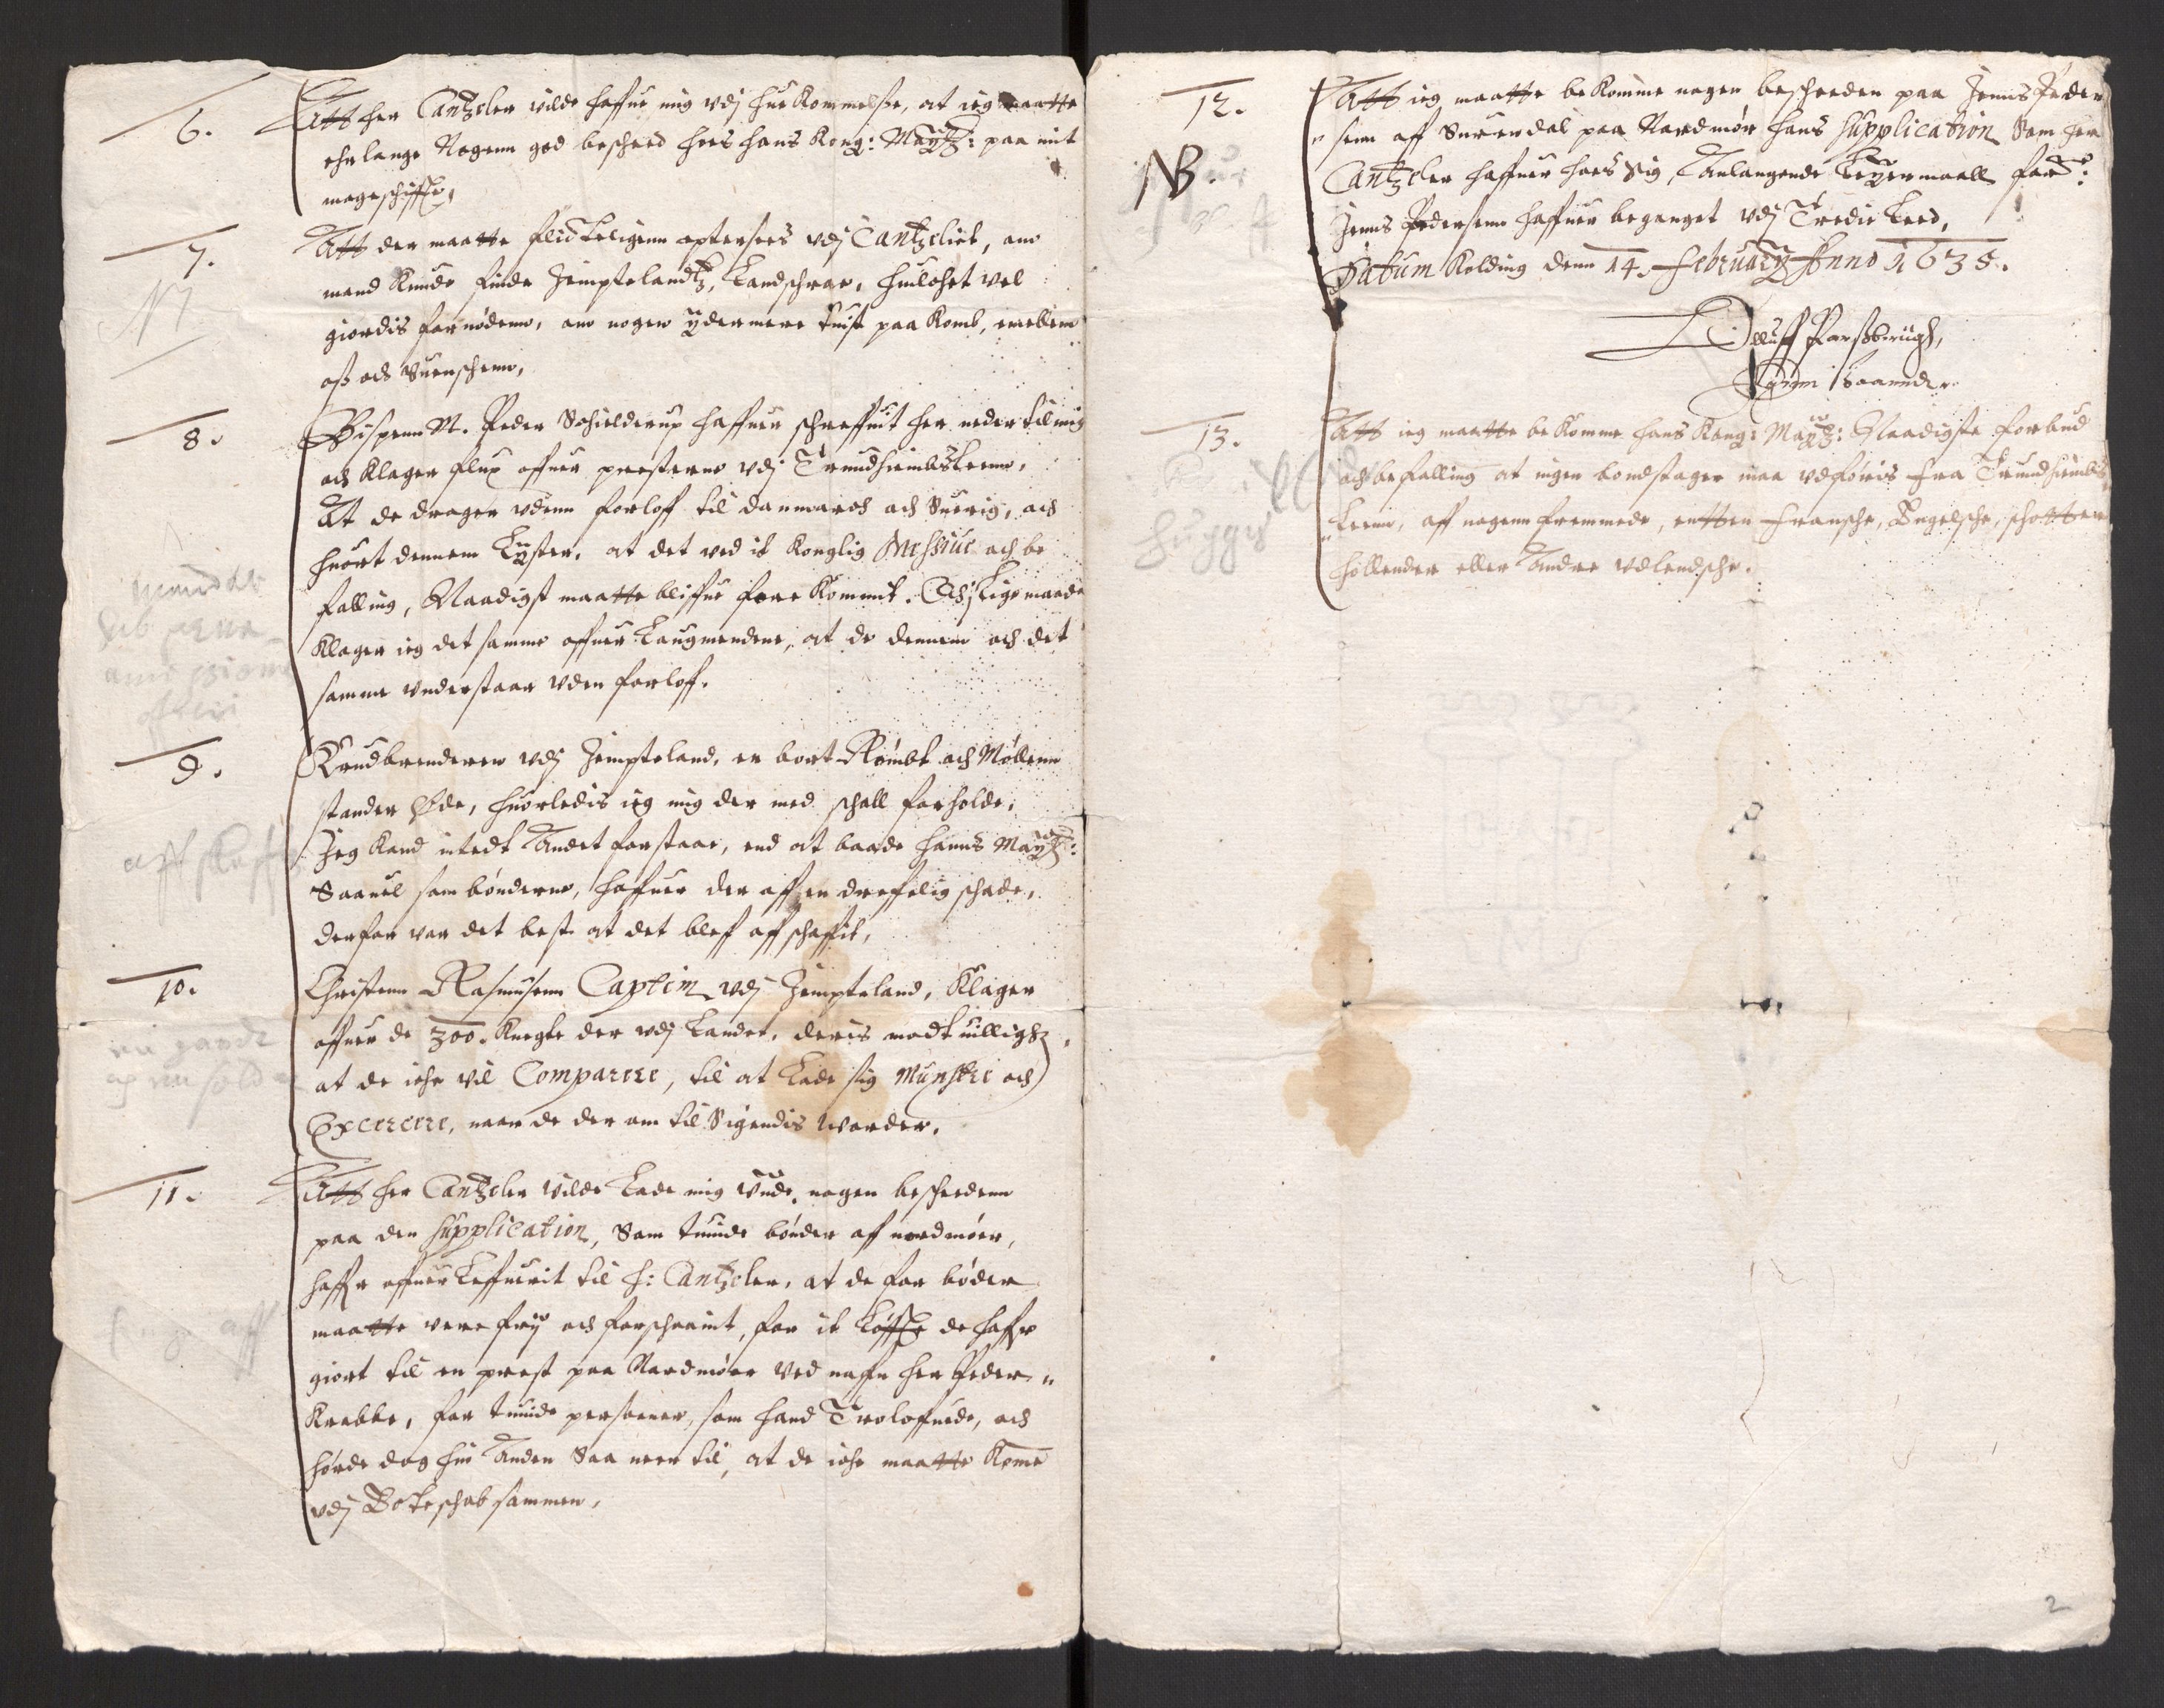 6.
Att her Cantzeler vilde haffue mig vdj hue kommelsße, at ieg maatte
erlange Nogenn god bescheed hoes hans Kong: Maytz: paa mit
mageschiffte,
7.
Att der maatte flidteligenn eptersees vdj Cantzeliet, om
mand kunde finde Jempteland, Landschrae, huilchet vel
giordis fornødenn, om nogen ydermere tuist paa komb, emellem
oß och Suenschenn,
8.
Bispenn M. Peder Schielderup haffuer schreffuit her neder til mig
och klager flux offuer presterne vdj Trundhiembs Leenn,
At de drager vdenn forloff til danmarch och Suerig, och
huort dennem Lyster, at det ved it Konglig Messiue och be
falling, Naadigst maatte bliffue fore kommit. Och Lige maade
klager ieg det samme offuer Laugmendene, at de dennem och det
samme vnderstaar vden forloff.
9.
Krudbrenderen vdj Jempteland, er bort Rømbt och Møllenn
stander Øde, huorledis ieg mig der med schall forholde,
Jeg kand intedt Andet forstaae, end at baade hanns Maytz:
Saauel som bønderne, haffuer der aff en drefelig schade,
derfor var det best at det blef aff schaffit,
aff skaff
10.
Christenn Rasmusenn Captein vdj Jempteland, klager
offuer de 300. knegte der vdj Landet, deris modtuillighed,
at de iche vil Comparere, til at Lade sig Munstre och
Exercere, naar de der om til Sigendis worder.
11.
Att her Cantzeler vilde Lade mig vnde nogen bescheedenn
paa den Supplication, Som tuinde bønder af nordmøer,
haffr offuer Leffuerit til h: Cantzeler, at de for bøder
maatte vere frij och forschaanit, for it Løffte de haffr
giort til en prest paa Nordmøer ved naffn her Peder
Krabbe, for tuinde personer, som hand Troloffuede, och
hørde dog hin Anden Saa neer til, at de iche maatte kome
vdj Echteschab sammen,
12.
NB.
Att ieg maatte bekomme nogen bescheeden paa Jenns Peder
senn aff Surendal paa Nordmør hans Supplication Som her
Cantzeler haffuer hoes sig, Anlangende Leyermaall ford:
Jenns Pedersenn haffuer beganget vdj Tredie Leed,
Datum Kolding denn 14. February Anno 1635.
Olluff Parßbergh,
Egenn Haannd.
13.
Att ieg maatte bekomme hans Kong: Maytz: Naadigste forbud
och befalling at ingen bondstager maa vdføris fra Trundhiembs
Leenn, aff nogenn fremmede, entten Fransche, Engelsche, schotter
hollender eller Andre vdlendsche.
2